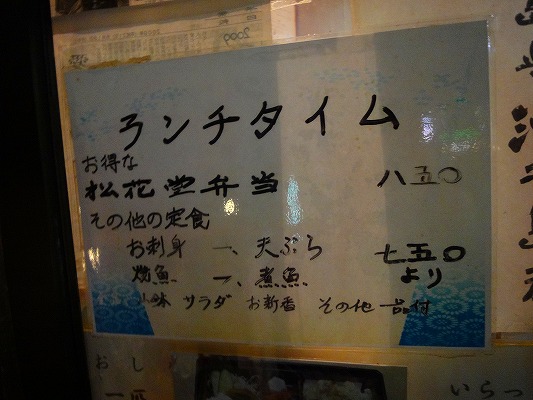 2009
ランチタイム
お得な
松花堂弁当 八五〇
その他の定食
お刺身 一、天ぷら 七五〇
焼魚 一、煮魚 より
小鉢 サラダ お新香 その他一品付
おし
いらっ